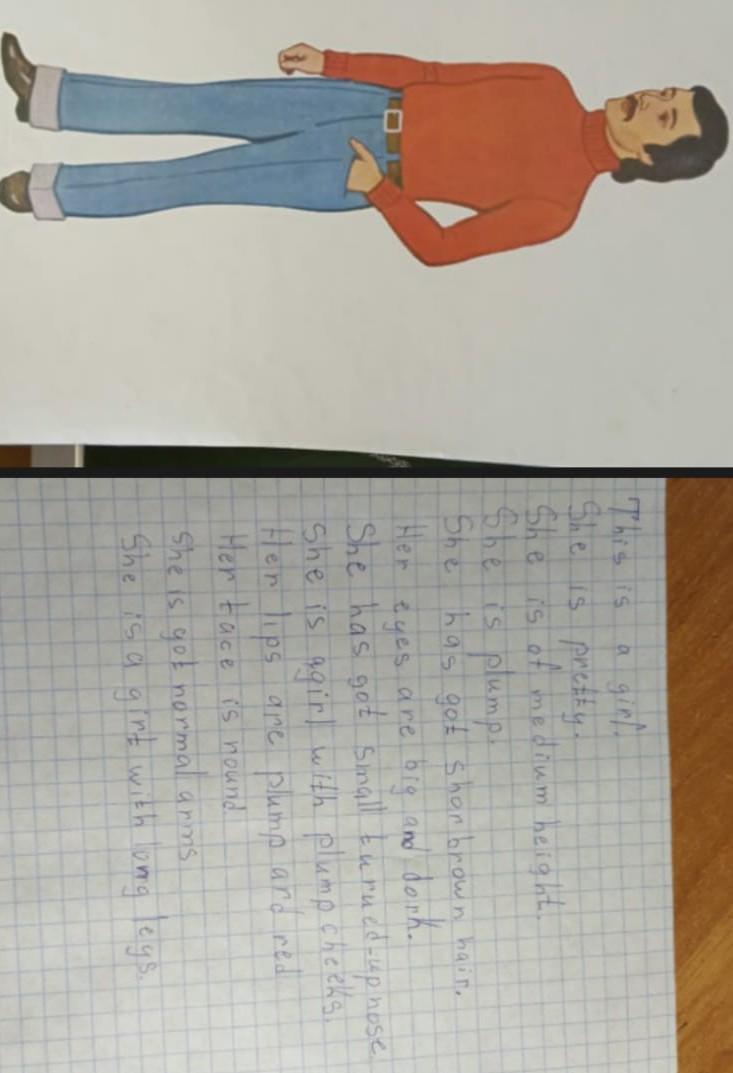 This is a girl.
She is pretty.
She is of medium height.
She is plump.
She has got shor brown hair.
Her eyes are big and dark.
She has got small turued-up nose
She is agirl with plump cheeks.
Her lips are plump and red
Her face is round
She is got normal arms
She is a girl with long legs.